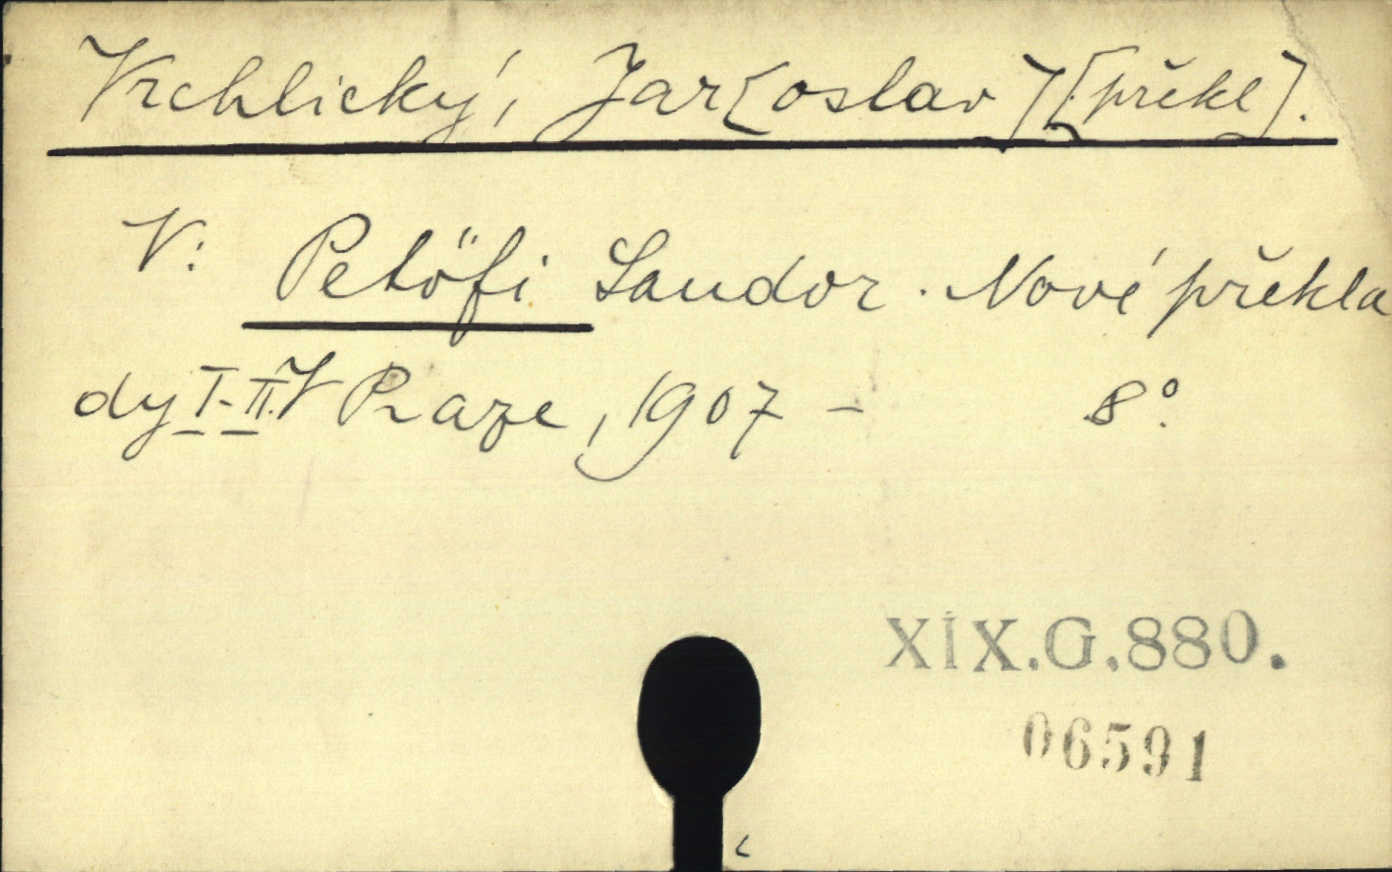 Vrchlický, Jar[oslav] [překl].
V: Petőfi Sandor. Nové překla
dy I-II. V Praze, 1907 - 8°.
XIX.G.880.
06591